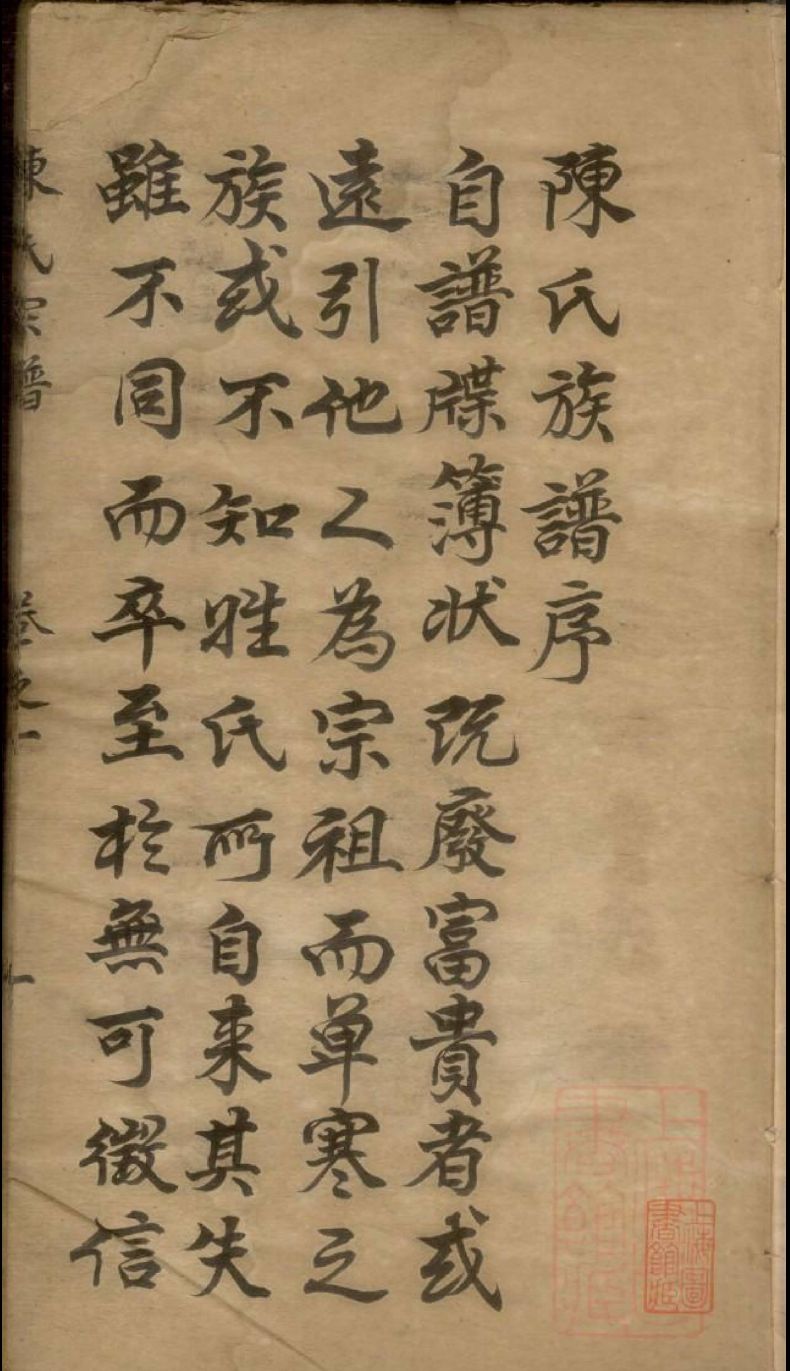 陳氏族譜序
自譜牒簿狀既廢富貴者或
遠引他人為宗祖而單寒之
族或不知姓氏所自来其失
雖不同而卒至於無可徵信
陳氏宗譜 卷之一 一
上海圖書館藏